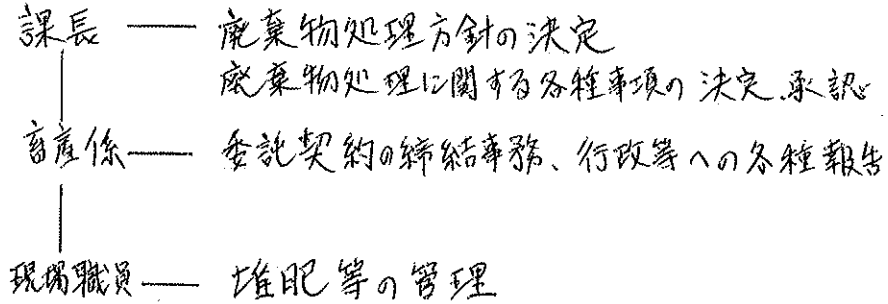 課長 ―― 廃棄物処理方針の決定
廃棄物処理に関する各種事項の決定、承認
畜産係 ―― 委託契約の締結事務、行政等への各種報告
現場職員 ―― 堆肥等の管理